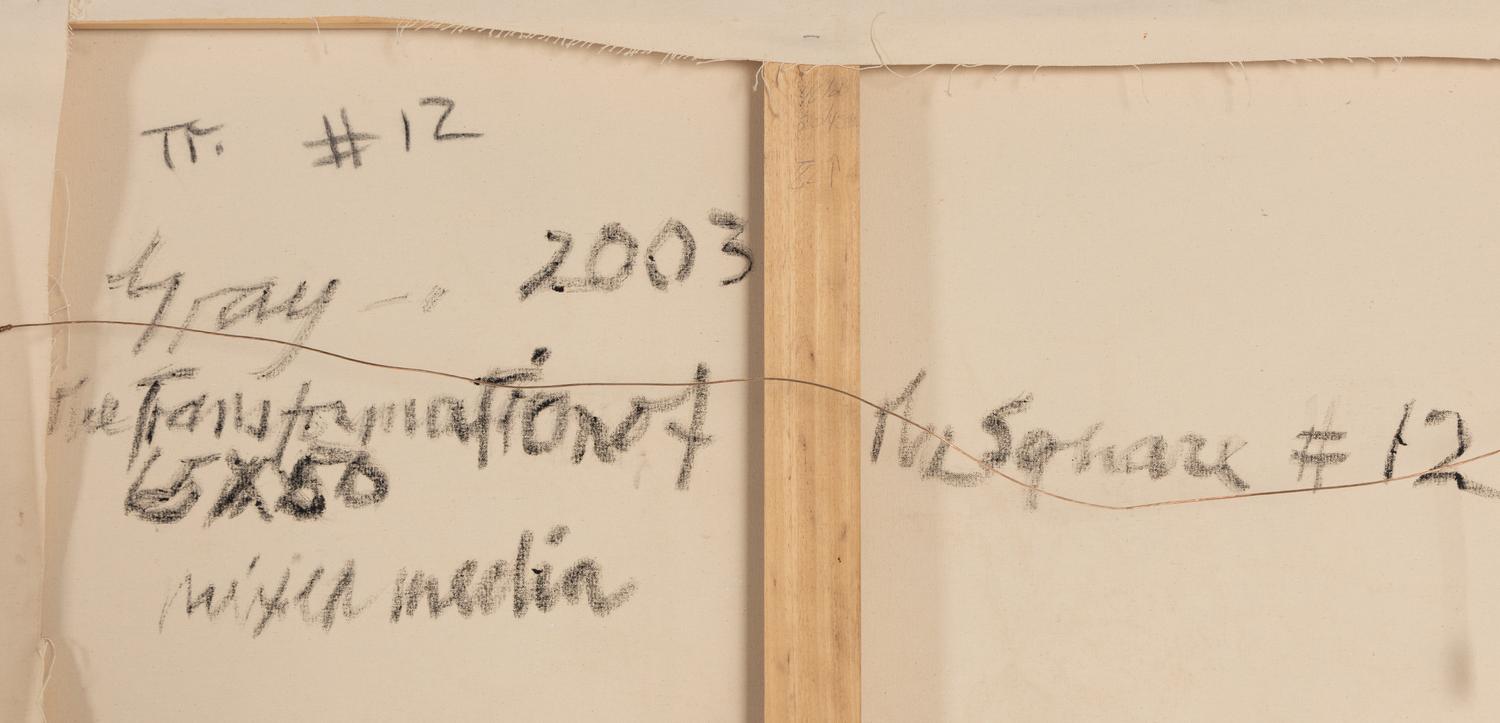 Tr. #12
2003
Gray -
The Transformation of the Square #12
65X50
mixed media